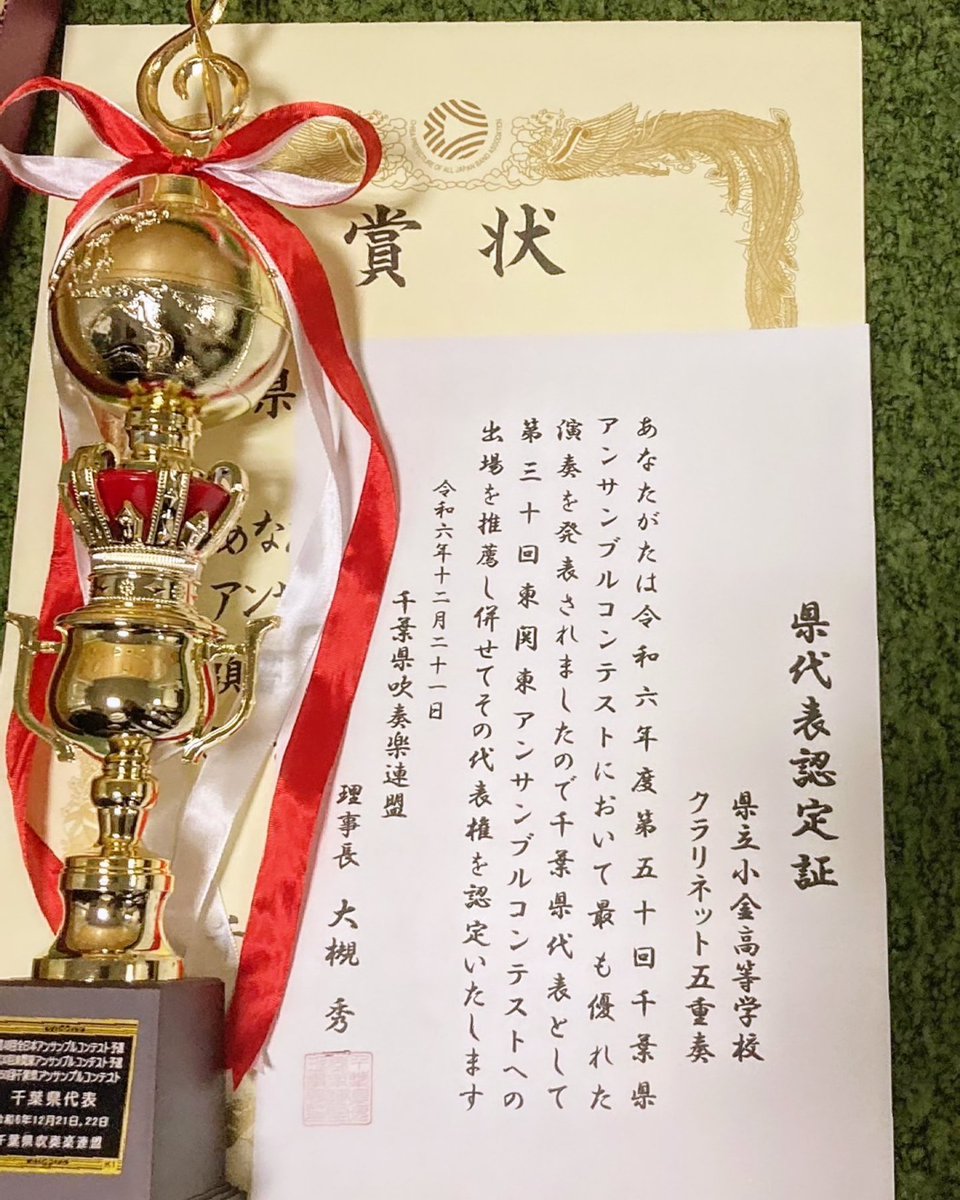 CHIBA PREFECTURE OF ALL JAPAN BAND ASSOCIATION
賞状
県代表認定証
県立小金高等学校
クラリネット五重奏
あなたがたは令和六年度第五十回千葉県
アンサンブルコンテストにおいて最も優れた
演奏を発表されましたので千葉県代表として
第三十回東関東アンサンブルコンテストへの
出場を推薦し併せてその代表権を認定いたします
令和六年十二月二十一日
千葉県吹奏楽連盟
理事長 大槻 秀
県
あな
アン
全日本アンサンブルコンテスト予選
アンサンブルコンテスト予選
千葉県アンサンブルコンテスト
千葉県代表
令和6年12月21日,22日
千葉県吹奏楽連盟